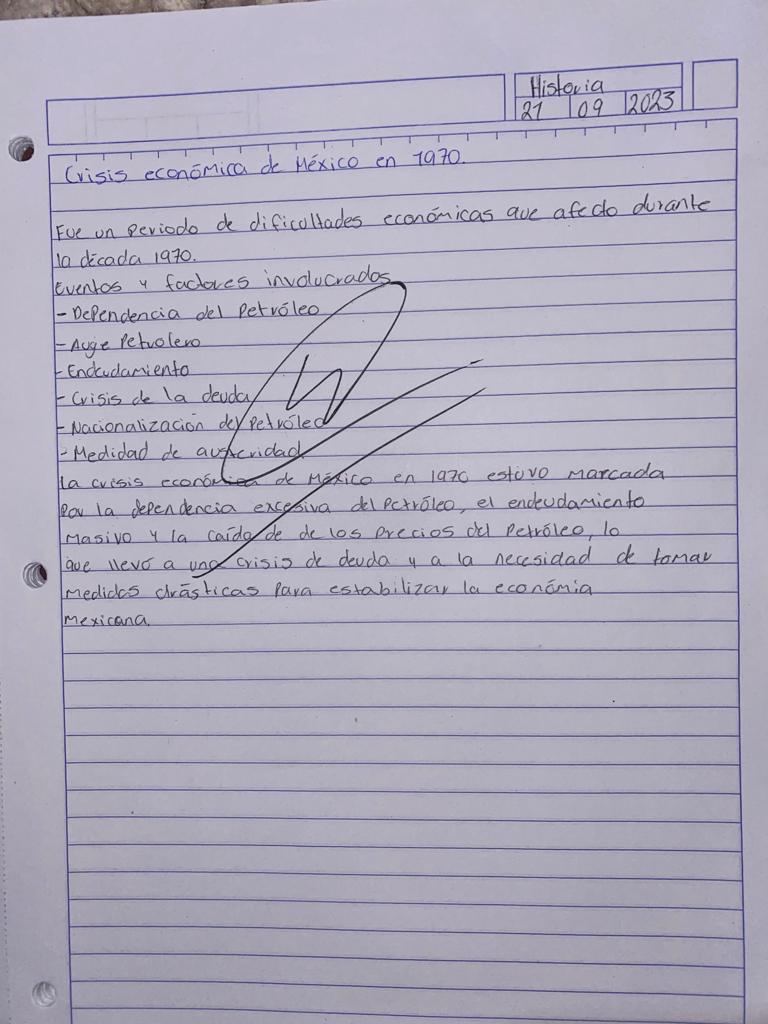 Historia
21 09 2023
Crisis económica de México en 1970.
Fue un Periodo de dificultades económicas que afecto durante
la década 1970.
Eventos y factores involucrados
- Dependencia del Petróleo
- Auge Petrolero
- Endeudamiento
- Crisis de la deuda
- Nacionalización del Petróleo
- Medidad de austeridad
La crisis económica de México en 1970 estuvo marcada
Por la dependencia excesiva del Petróleo, el endeudamiento
Masivo y la caída de de los Precios del Petróleo, lo
que llevó a una crisis de deuda y a la necesidad de tomar
Medidas drásticas Para estabilizar la económia
Mexicana.